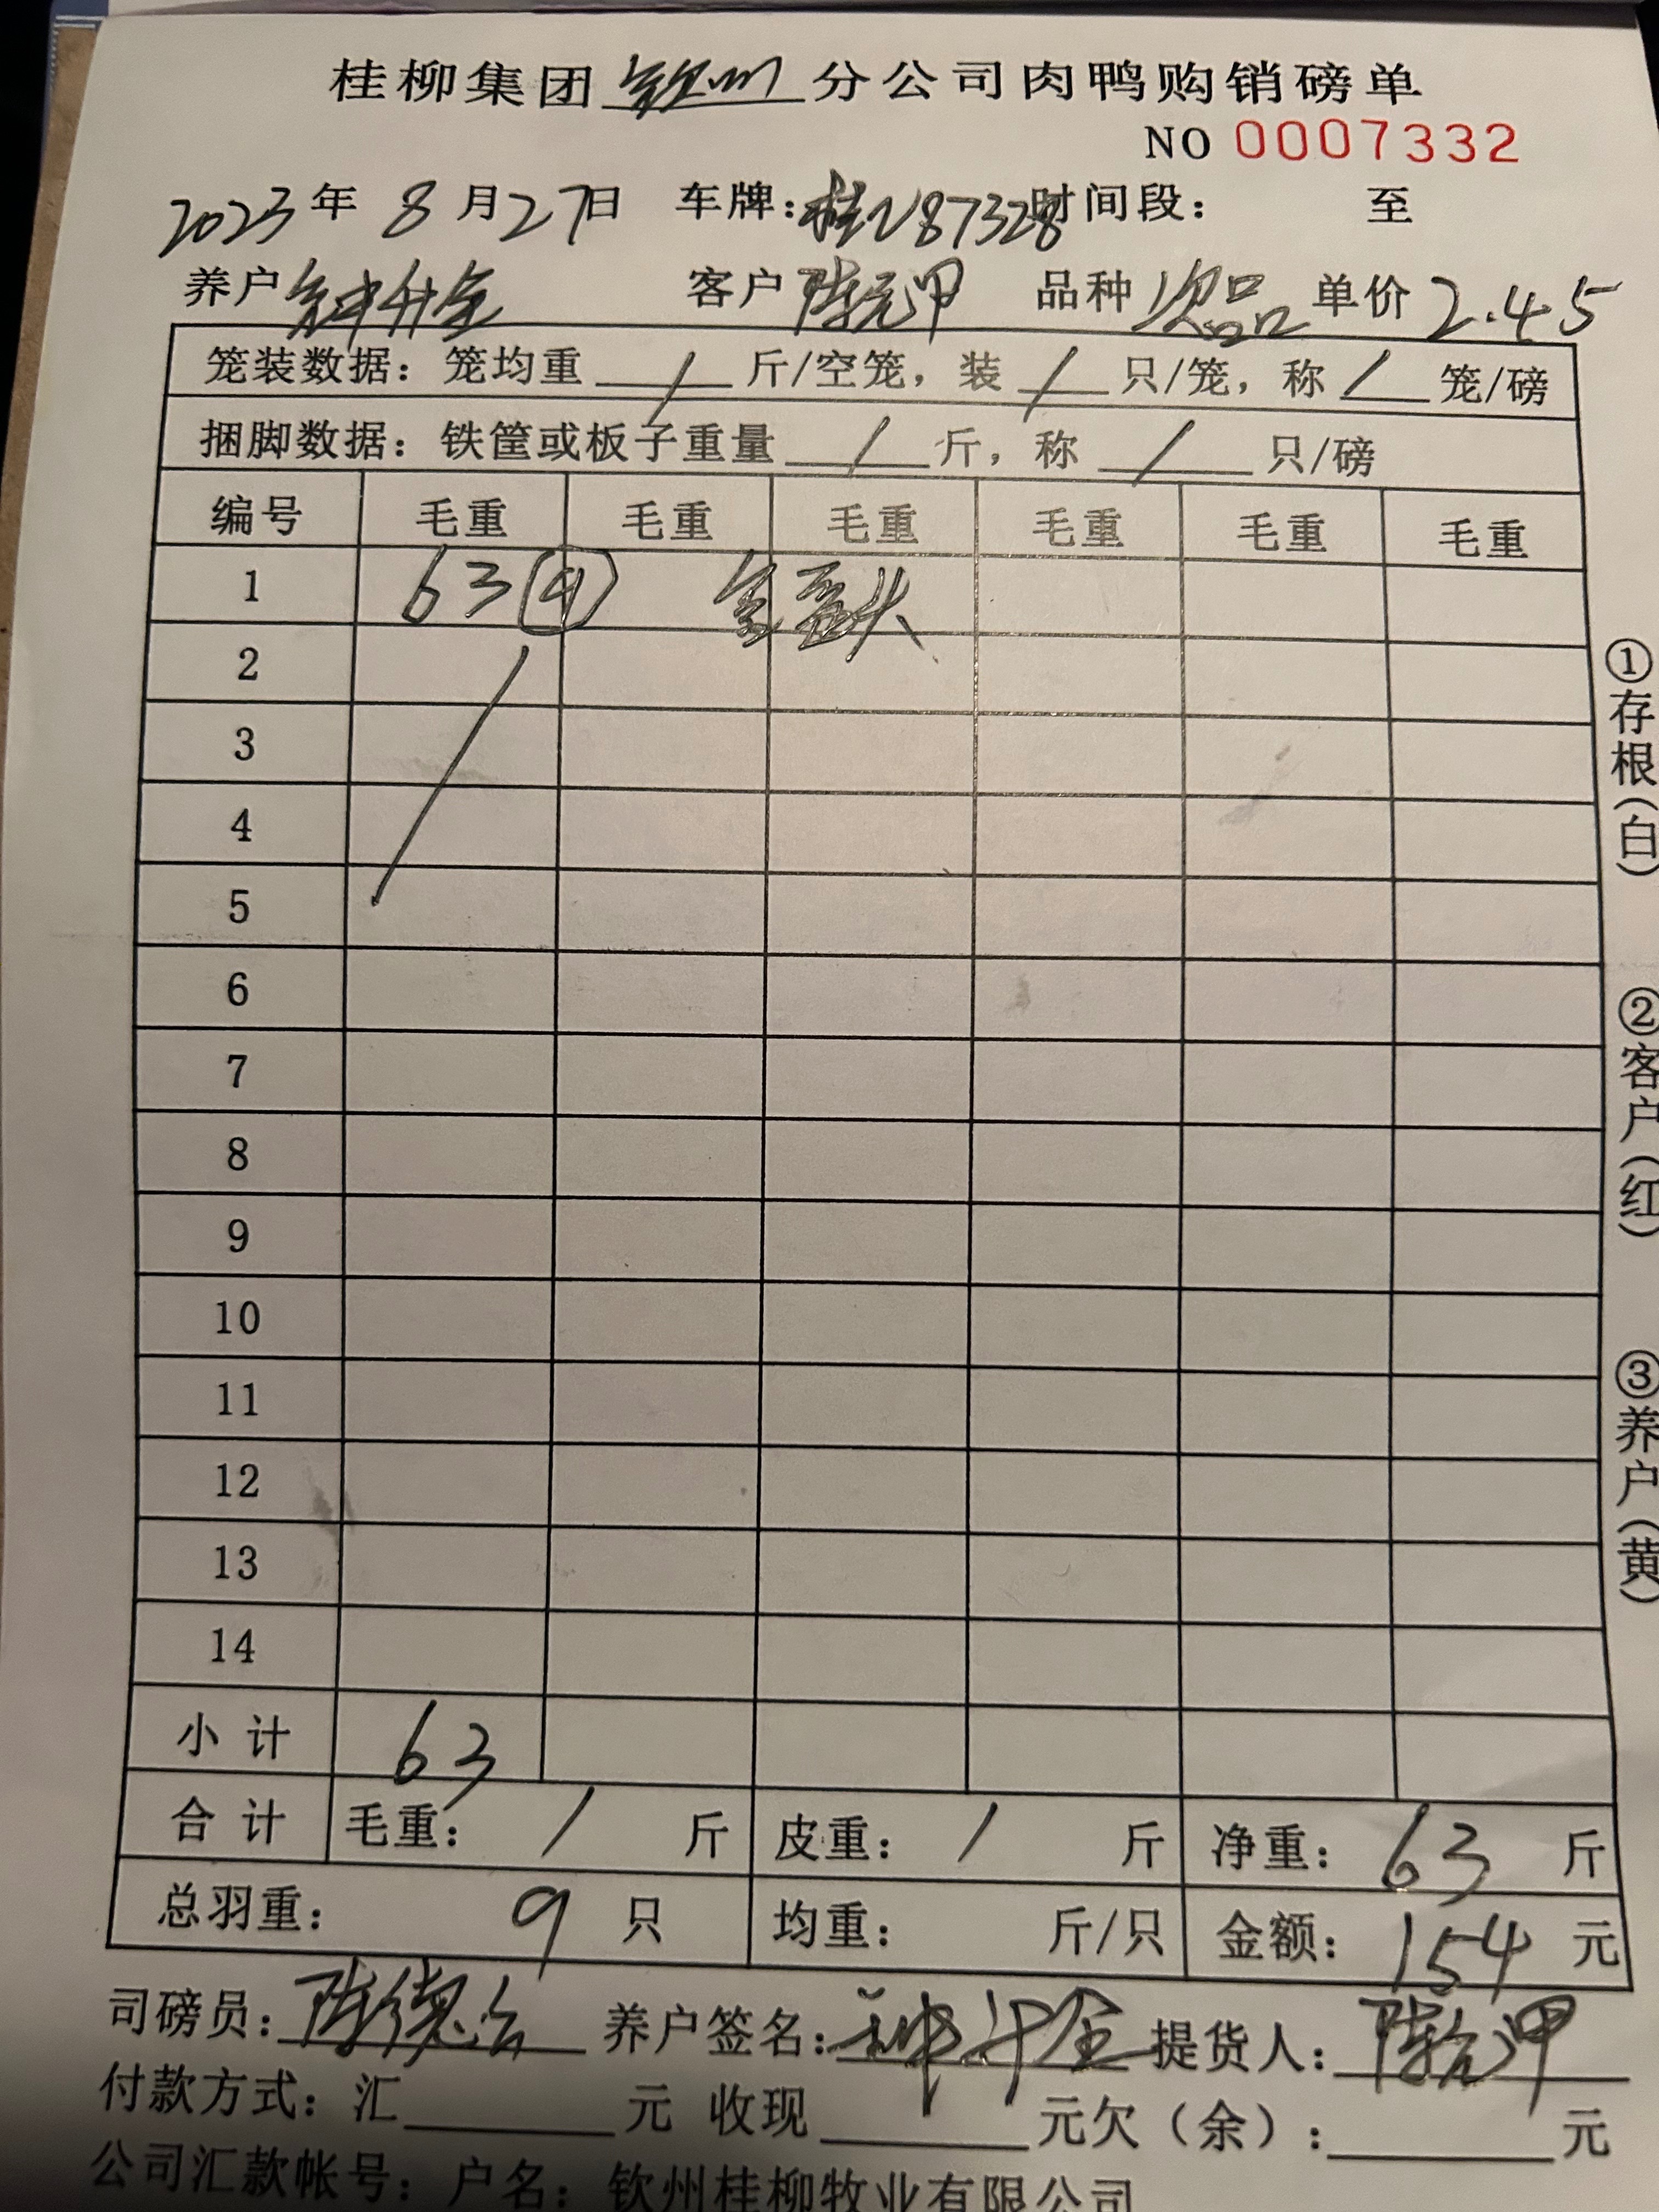 桂柳集团钦州分公司肉鸭购销磅单
NO 0007332
2023年 8月27日 车牌：桂N87328 时间段： 至
养户 钟升金 客户 陈元甲 品种 次品 单价 2.45
笼装数据：笼均重 / 斤/空笼，装 / 只/笼，称 / 笼/磅
捆脚数据：铁筐或板子重量 / 斤，称 / 只/磅
编号 毛重 毛重 毛重 毛重 毛重 毛重
1 63 (9) 头
2
3
4
5
6
7
8
9
10
11
12
13
14
小计 63
合计 毛重： / 斤 皮重： / 斤 净重：63 斤
总羽重： 9 只 均重： 斤/只 金额：154 元
司磅员：陈德 养户签名：钟升金 提货人：陈元甲
付款方式：汇 元 收现 元欠（余）： 元
公司汇款帐号：户名：钦州桂柳牧业有限公司
①存根（白）
②客户（红）
③养户（黄）